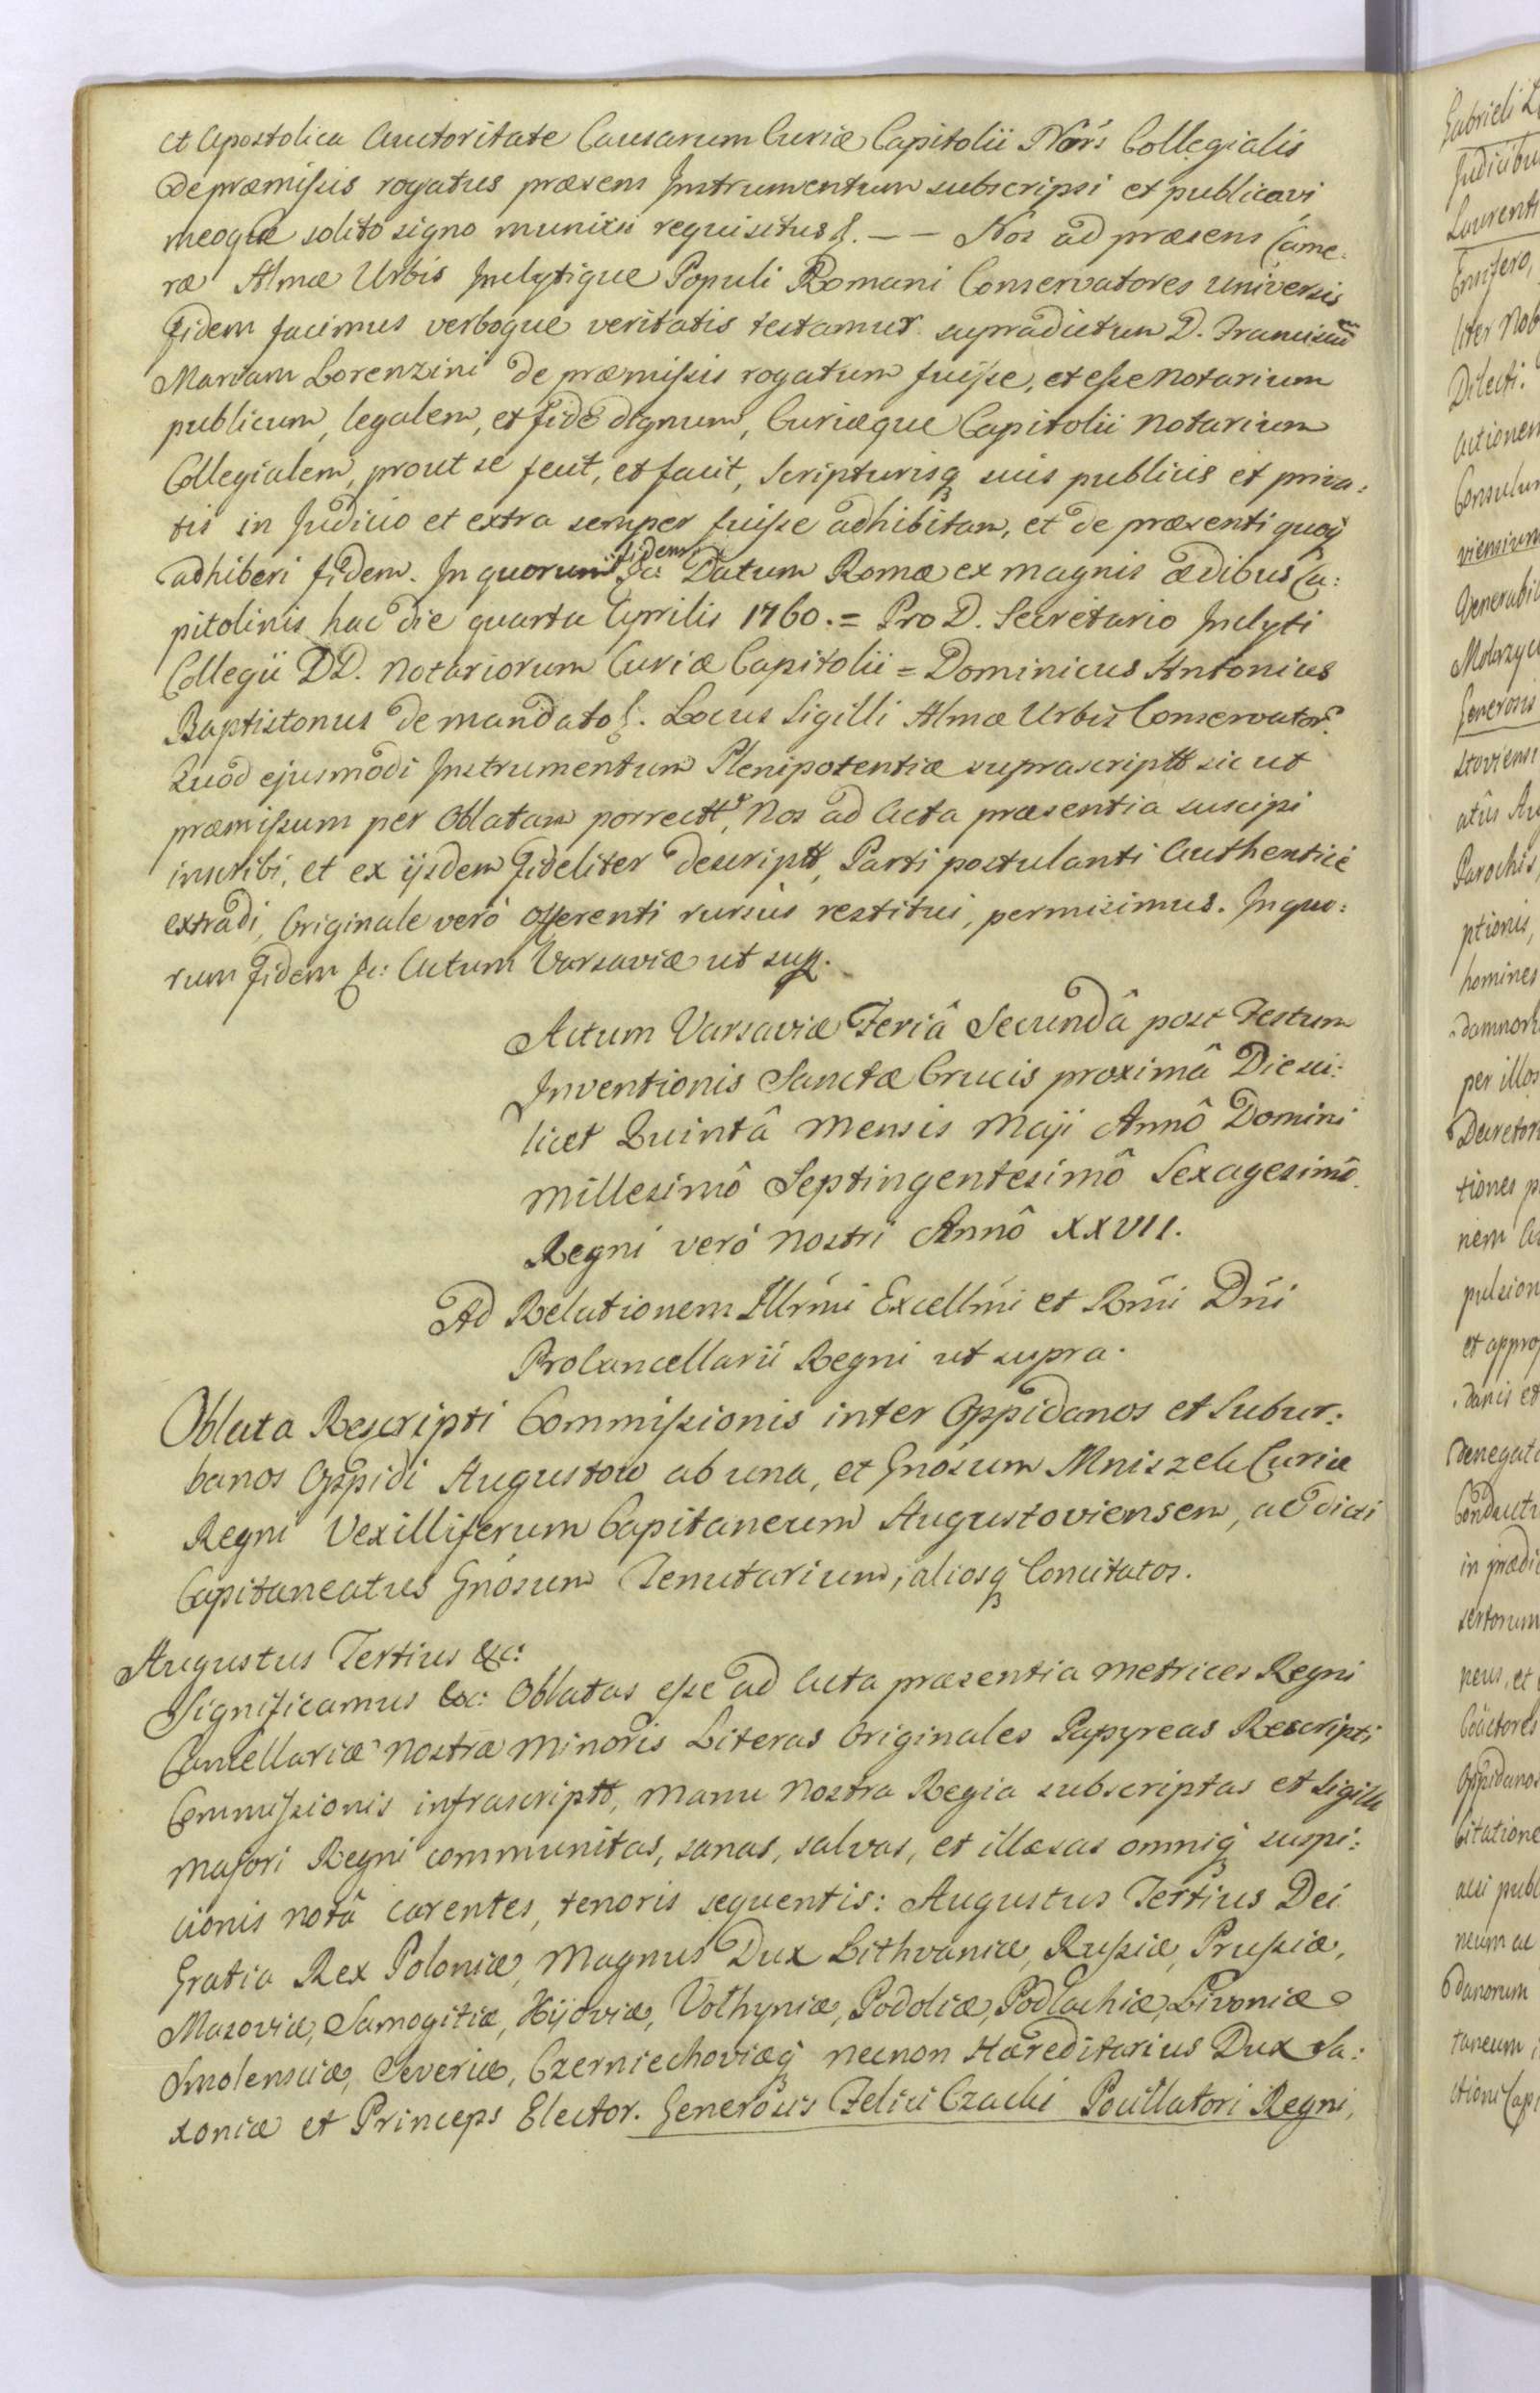 et Apostolica Auctoritate Causarum Curiæ Capitolii Nor̃s Collegialis
de præmissis rogatus præsens Instrumentum subscripsi et publicavi
meoque solito signo munivi requisitus §. — — Nos ad præsens Came:
ræ Almæ Urbis Inclytique Populi Romani Conservatores universis
fidem facimus verboque veritatis testamur supradictum D. Franciscum
Mariam Lorenzini de præmissis rogatum fuisse, et esse notarium
publicum, legalem, et fide dignum, Curiæque Capitolii notarium
Collegialem, prout se fecit, et facit, Scripturisq; suis publicis et priva:
tis in Judicio et extra semper fuisse adhibitam, et de præsenti quoq;
adhiberi fidem. In quorum fidem &c: Datum Romæ ex magnis ædibus Ca:
pitolinis hac die quarta Aprilis 1760. = Pro D. Secretario Inclyti
Collegii DD. Notariorum Curiæ Capitolii = Dominicus Antonius
Baptistonus de mandato §. Locus Sigilli Almæ Urbis Conservator:
Quod ejusmodi Instrumentum Plenipotentiæ suprascriptt sic ut
præmissum per Oblatam porrectt, Nos ad Acta præsentia suscipi
inscribi, et ex iisdem fideliter descriptt, Parti postulanti Authenticè
extradi, Originale verò Offerenti rursùs restitui, permisimus. In quo:
rum fidem &c: Actum Varsaviæ ut sup.
Actum Varsaviæ Feriâ Secundâ post Festum
Inventionis Sanctæ Crucis proximâ Die sci:
licet Quintâ Mensis Maji Annô Domini
Millesimô Septingentesimô Sexagesimô.
Regni verò Nostri Annô XXVII.
Ad Relationem Illr̃mi Excellm̃i et Rm̃i Dn̄i
Procancellarii Regni ut supra.
Oblata Rescripti Commissionis inter Oppidanos et Subur:
banos Oppidi Augustow ab una, et Gnósum Mniszek Curiæ
Regni Vexilliferum Capitaneum Augustoviensem, ac dicti
Capitaneatus Gnósum Tenutarium, aliosq; Concitatos.
Augustus Tertius &c:
Significamus &c: Oblatas esse ad Acta præsentia Metrices Regni
Cancellariæ Nostræ Minoris Literas Originales Papyreas Rescripti
Commissionis infrascriptt, Manu Nostra Regia subscriptas et Sigillo
Majori Regni communitas, sanas, salvas, et illæsas omniq; suspi:
cionis notâ carentes, tenoris sequentis: Augustus Tertius Dei
Gratia Rex Poloniæ, Magnus Dux Lithvaniæ, Russiæ, Prussiæ,
Masoviæ, Samogitiæ, Kijoviæ, Volhyniæ, Podoliæ, Podlachiæ, Livoniæ
Smolensciæ, Severiæ, Czerniechoviæq; necnon Hæreditarius Dux Sa:
xoniæ et Princeps Elector. Generosis Felici Czacki Pocillatori Regni,